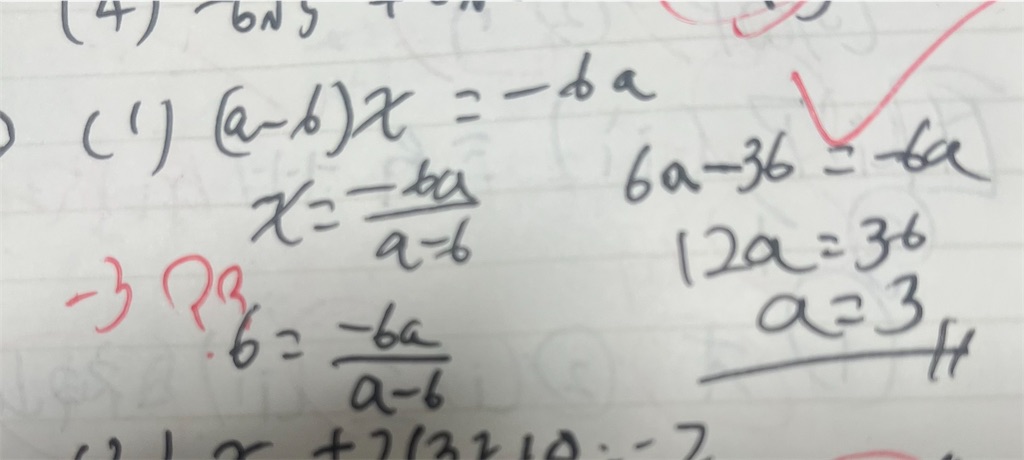 (4)
(1) (a-6)x = -6a
x = \frac{-6a}{a-6}
-3 ??
6 = \frac{-6a}{a-6}
6a-36 = -6a
12a = 36
a = 3